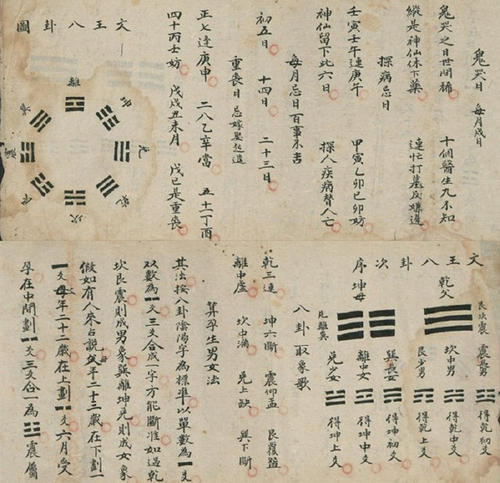 鬼哭日 每月戌日
鬼哭之日世間稀 十個醫生九不知
縱是神仙休下藥 連忙打墓反嫌遲
探病忌日
壬寅壬午連庚午 甲寅乙卯己卯妨
神仙留下此六日 探人疾病替人亡
每月忌日百事不吉
初五日 十四日 二十三日
重喪日 忌嫁娶起造
正七逢庚甲 二八乙辛當 五十一丁酉
四十丙壬妨 戊戌丑未月 戊己是重喪
文王八卦圖
離
坎
文王八卦次序
乾父 坤母
艮坎震 兌離巽
震長男 得乾初爻
坎中男 得乾中爻
艮少男 得乾上爻
巽長女 得坤初爻
離中女 得坤中爻
兌少女 得坤上爻
八卦取象歌
乾三連 坤六斷 震仰盂 艮覆盌
離中虛 坎中滿 兌上缺 巽下斷
算孕生男女法
其法按八卦陰陽爻為標準以單數為一爻
双數為爻三爻合成一字方能斷准如過乾
坎艮震則成男象巽離坤兌則成女象
假如有人來占說父年二十三歲在下劃一
爻母年二十二歲在上劃爻六月受
孕在中間劃爻三爻合一為震屬